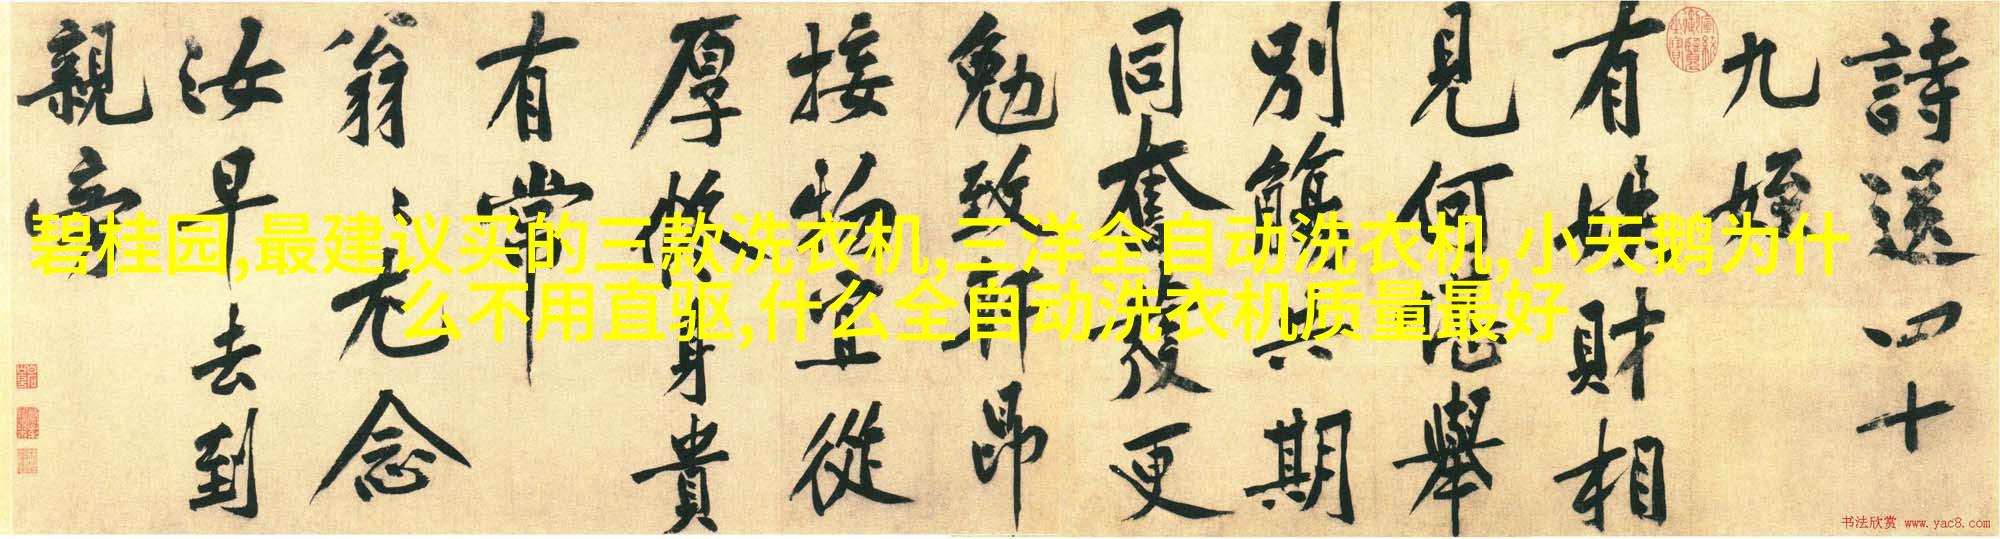 詩送四十
九姪
有姪財相
見何堪舉
別觴共期
同奮發更
勉致軒昂
接物宜從
厚修身貴
有常
翁〻尤念
汝早去到
親旁
碧桂园,最建议买的三款洗衣机,三洋全自动洗衣机,小天鹅为什
么不用直驱,什么全自动洗衣机质量最好
书法欣赏 www.yac8.com